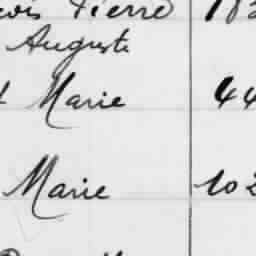 Pierre
Auguste
Marie 44
Marie 102